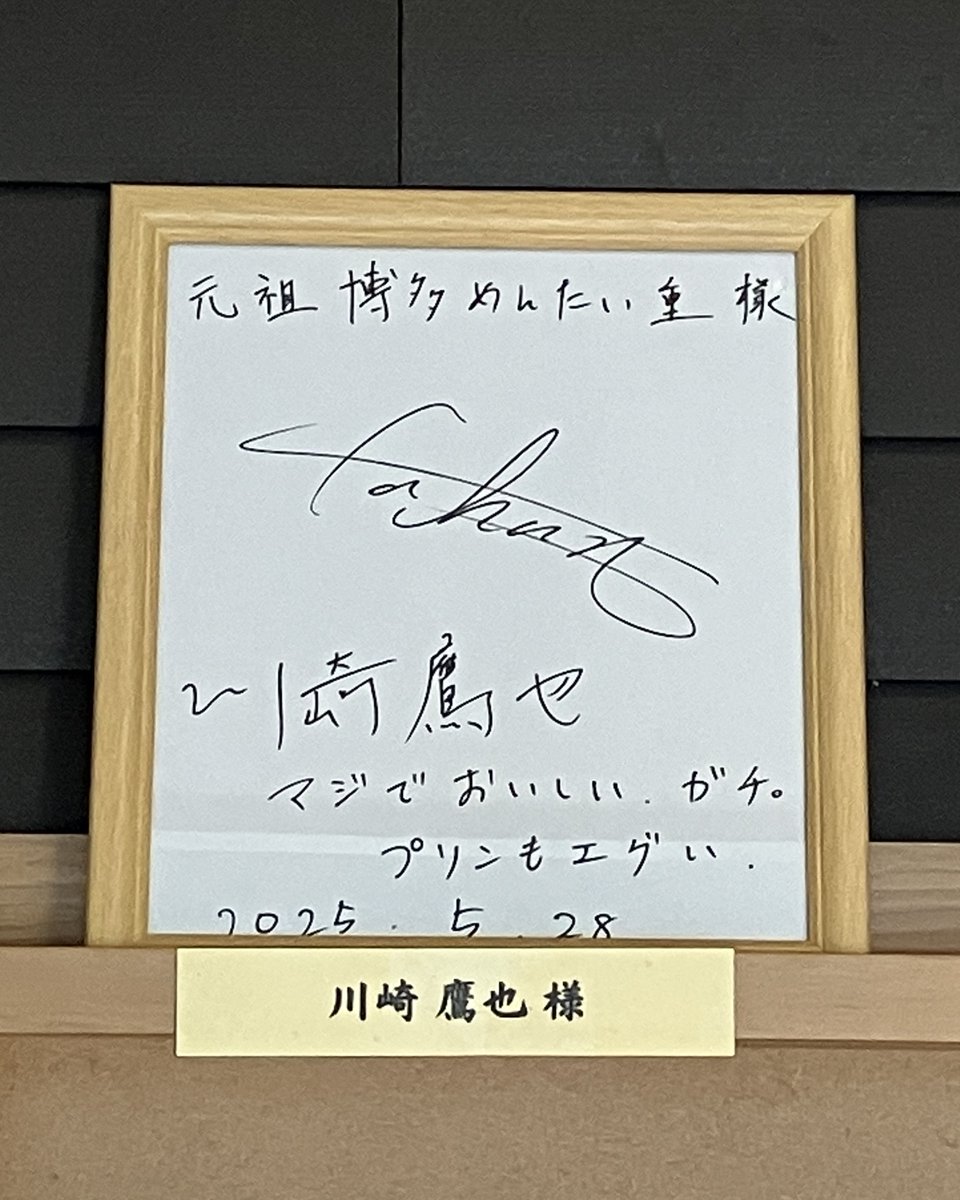 元祖 博多めんたい重 様
川崎鷹也
マジでおいしい. ガチ。
プリンもエグい.
2025. 5. 28
川崎 鷹也 様